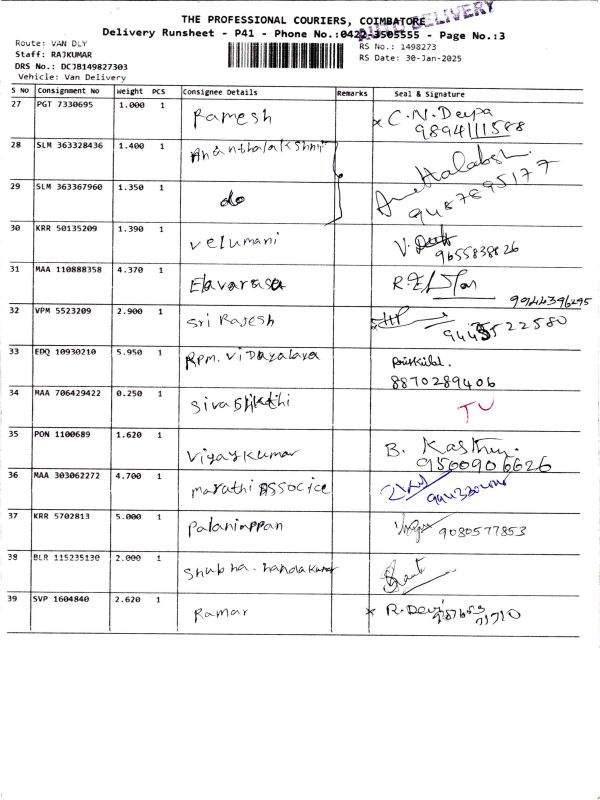 AUTO DELIVERY
THE PROFESSIONAL COURIERS, COIMBATORE
Delivery Runsheet - P41 - Phone No.:0422-3505555 - Page No.:3
Route: VAN DLY
Staff: RAJKUMAR
DRS No.: DCJB149827303
Vehicle: Van Delivery
RS No.: 1498273
RS Date: 30-Jan-2025
S No Consignment No Weight PCS Consignee Details Remarks Seal & Signature
27 PGT 7330695 1.000 1 Ramesh x C.N. Deepa
9894111588
28 SLM 363328436 1.400 1 Ananthalakshmi
29 SLM 363367960 1.350 1 do 9487895177
30 KRR 50135209 1.390 1 Velumani V.
9655838826
31 MAA 110888358 4.370 1 Elavarasa R.
9944396495
32 VPM 5523209 2.900 1 Sri Rajesh
33 EDQ 10930210 5.950 1 Rpm. Vidayalaya
8870289406
34 MAA 706429422 0.250 1 Siva Shkthi TV
35 PON 1100689 1.620 1 Vijaykumar B.
9500906626
36 MAA 303062272 4.700 1 marathi Associce
37 KRR 5702813 5.000 1 Palaniappan 9080577853
38 BLR 115235130 2.000 1 Shubha. nandakumar
39 SVP 1604840 2.620 1 Ramar x R. Devi